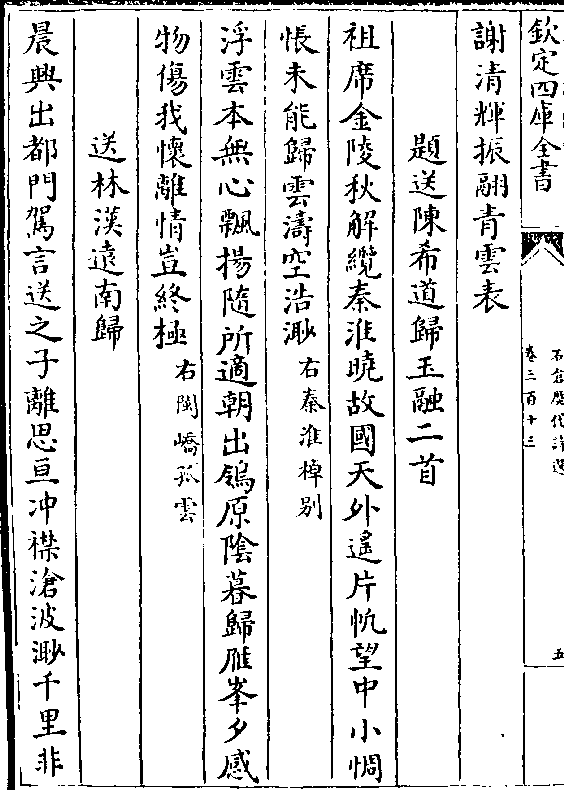 欽定四庫全書
石倉歷代詩選
卷三百十三
五
謝清輝振翮青雲表
題送陳希道歸玉融二首
祖席金陵秋解纜秦淮曉故國天外遙片帆望中小惆
悵未能歸雲濤空浩渺右秦淮棹别
浮雲本無心飄揚隨所適朝出鴒原陰暮歸雁峯夕感
物傷我懷離情豈終極右閩嶠孤雲
送林漢遠南歸
晨興出都門駕言送之子離思亘冲襟滄波渺千里非